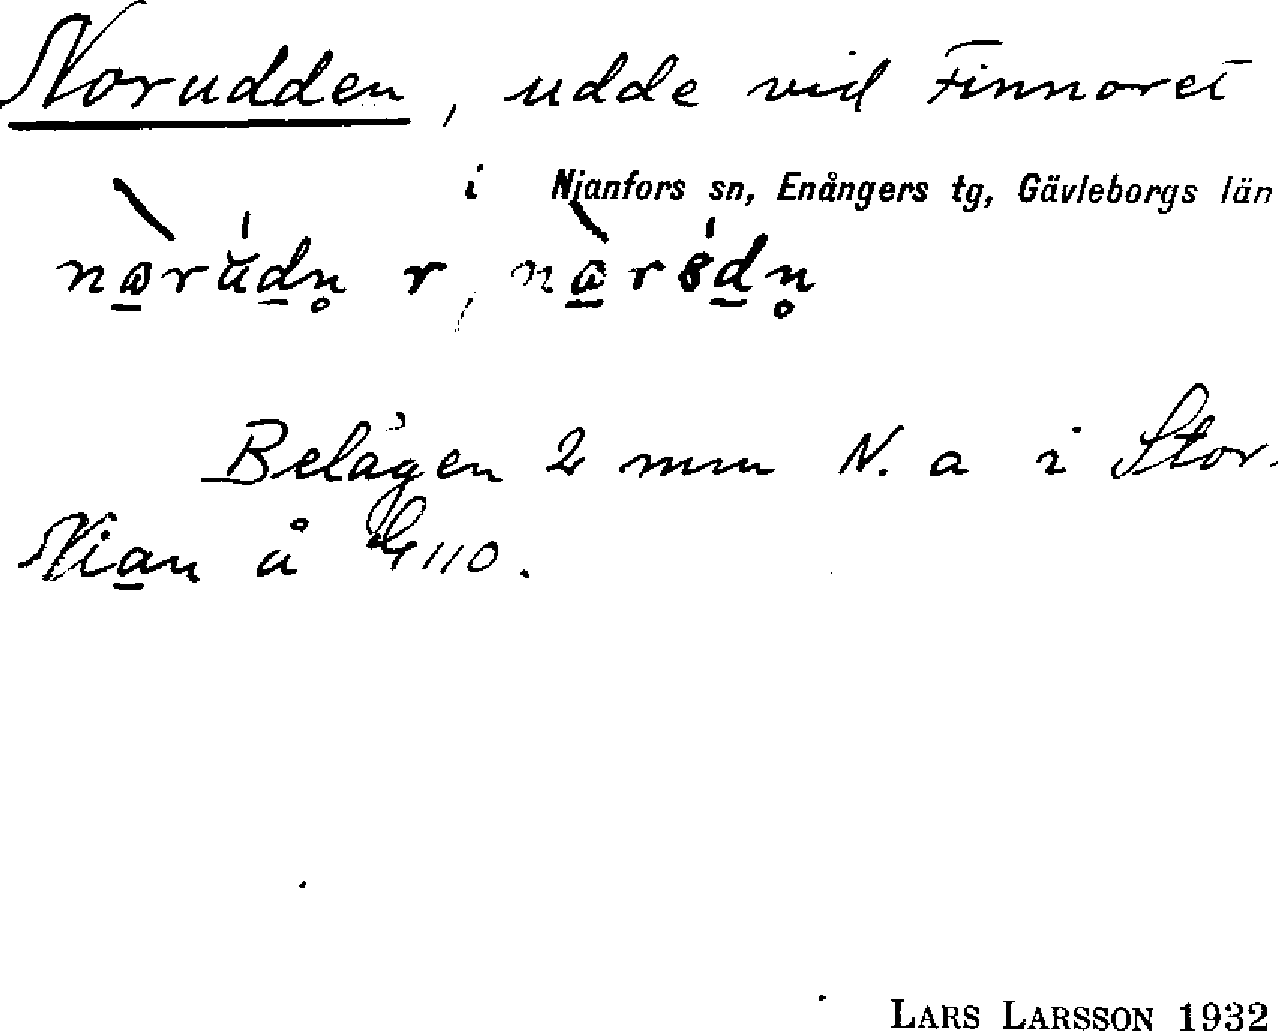 Norudden, udde vid Finnoret
i Njanfors sn, Enångers tg, Gävleborgs län
r,
Belägen 2 mm N. a i Stor-
Nian å G110.
LARS LARSSON 1932